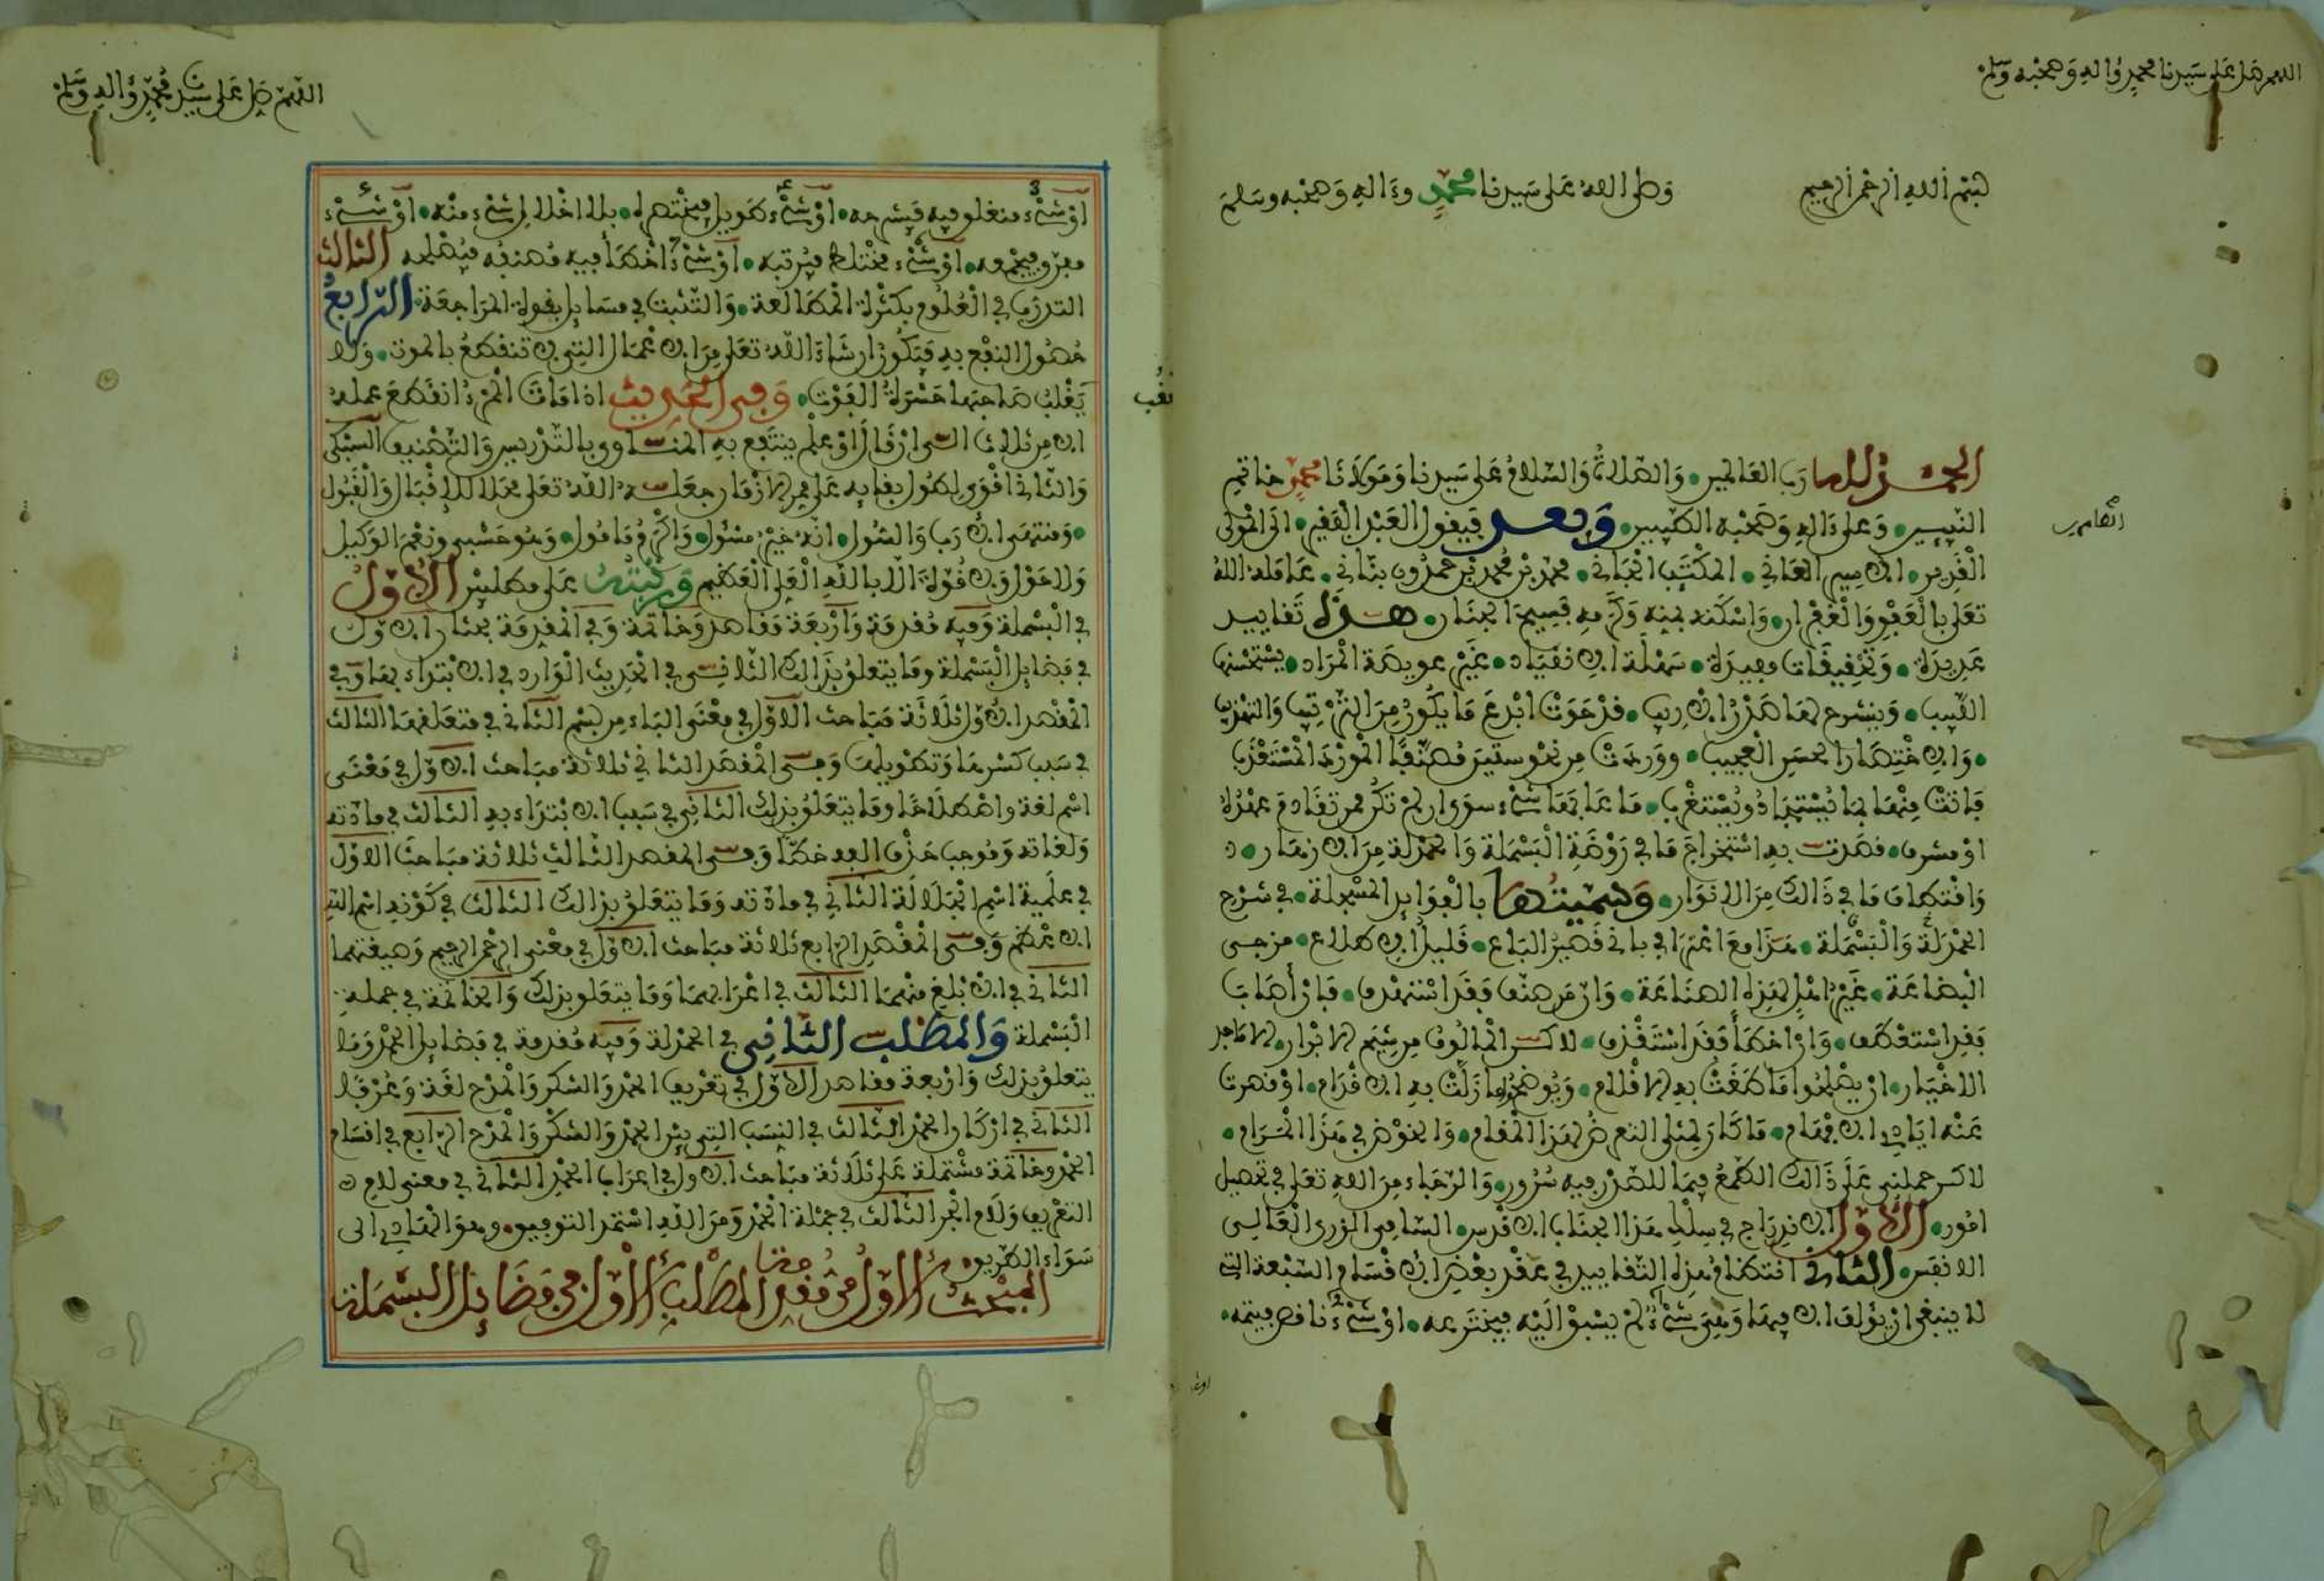 اللهم صل على سيدنا محمد وءاله وصحبه وسلم
بسم الله الرحمن الرحيم وصلى الله على سيدنا محمد وءاله وصحبه وسلم
الحمد لله رب العالمين والصلاة والسلام على سيدنا ومولانا محمد خاتم
النبيين وعلى ءاله وصحبه الطيبين وبعد فيقول العبد الفقير الى المولى
الطاهرين
القدير الاسير العاني المكتب الجاني محمد بن محمد بن حمدون بناني عامله الله
تعلى بالعفو والغفران واسكنه بمنه وكرمه فسيح الجنان هذه تقاييد
عديدة وتحقيقات مفيدة سهلة الانقياد غير عويصة المراد يستحسنها
اللبيب وينشرح لها صدر الاريب قد حوت ابدع ما يكون من الترتيب والتهذيب
والاختصار الحسن العجيب ووردت من نحو ستين مصنفا المورد المستعذب
فاتت منها بما يستجاد ويستغرب ما عابها شيء سوى ان لم تكن ممن تقادم عصره
او مشرب قصدت به استخراج ما في روضة البسملة والحمدلة من الازهار
واقتطاف ما في ذالك من الانوار وسميتها بالفوايد المسجلة في شرح
الحمدلة والبسملة هذا مع اعترافي باني قصير الباع قليل الاطلاع مزجى
البضاعة غير اهل لهذه الصناعة وان من صنف فقد استهدف فان اصاب
فقد استعطف وان اخطأ فقد استقذف لاكن المالوف من شيم الابرار الاماجد
الاخيار ان يصلحوا ما طغت به الاقلام ويوضحوا ما زلت به الاقدام او قصرت
عنه ايادي الافهام ما كان لمثلي التعرض لهذا المقام والخوض في هذا المرام
لاكن حملني على ذالك الطمع فيما للصدر فيه سرور والرجاء من الله تعلى في تحصيل
امور الاول الاندراج في سلك هذا الجناب الاقدس السامي الذرى العالي
الانفس الثاني انتظام هذه التقاييد في عقد بعض الاقسام السبعة التي
لا ينبغي ان يؤلف الا فيها وهي شيء لم يسبق اليه فيخترعه او شيء ناقص فيتمه
او شيء
اللهم صل على سيدنا محمد وءاله وسلم
او شيء منغلق فيه فيشرحه او شيء طويل فيختصره بلا اخلال لشيء منه او شيء
مفرق فيجمعه او شيء مختلط فيرتبه او شيء اخطأ فيه مصنفه فيصلحه الثالث
التدرب في العلوم بكثرة المطالعة والتثبت في مسايل بقوة المراجعة الرابع
حصول النفع به فيكون ان شاء الله تعلى من الاعمال التي لا تنقطع بالموت ولا
يغلب صاحبها حسرة الفوت وفي الحديث اذا مات المرء انقطع عمله
الا من ثلاث الى ان قال او علم ينتفع به المناوي بالتدريس والتصنيف السبكي
والثاني اقوى لطول بقايه على ممر الازمان جعله الله تعلى محلا للاقبال والقبول
ومنتهى الارب والسول انه خير مسئول واكرم مامول وهو حسبي ونعم الوكيل
ولا حول ولا قوة الا بالله العلي العظيم ورتبته على مطلبين الاول
في البسملة وفيه مقدمة واربعة مقاصد وخاتمة وفي المقدمة بحثان الاول
في فضايل البسملة وما يتعلق بذالك الثاني في الحديث الوارد في الابتداء بها وفي
المقصد الاول ثلاثة مباحث الاول في معنى الباء من بسم الثاني في متعلقها الثالث
في سبب كسرها وتطويلها وفي المقصد الثاني ثلاثة مباحث الاول في معنى
اسم لغة واصطلاحا وما يتعلق بذلك الثاني في سبب الابتداء به الثالث في مادته
ولغاته وموجب حذف الفه خطا وفي المقصد الثالث ثلاثة مباحث الاول
في علمية اسم الجلالة الثاني في مادته وما يتعلق بذالك الثالث في كونه اسم الله
الاعظم وفي المقصد الرابع ثلاثة مباحث الاول في معنى الرحمن الرحيم وصيغتهما
الثاني في الابلغ منهما الثالث في اعرابهما وما يتعلق بذلك والخاتمة في جملة
البسملة والمطلب الثاني في الحمدلة وفيه مقدمة في فضايل الحمد وما
يتعلق بذلك واربعة مقاصد الاول في تعريف الحمد والشكر والمدح لغة وعرفا
الثاني في اركان الحمد الثالث في النسب التي بين الحمد والشكر والمدح الرابع في اقسام
الحمد وخاتمة مشتملة على ثلاثة مباحث الاول في اعراب الحمد الثاني في معنى لام
التعريف ولام الجر الثالث في جملة الحمد ومن الله استمد التوفيق وهو الهادي الى
سواء الطريق
المبحث الاول من مقدمة المطلب الاول في فضايل البسملة